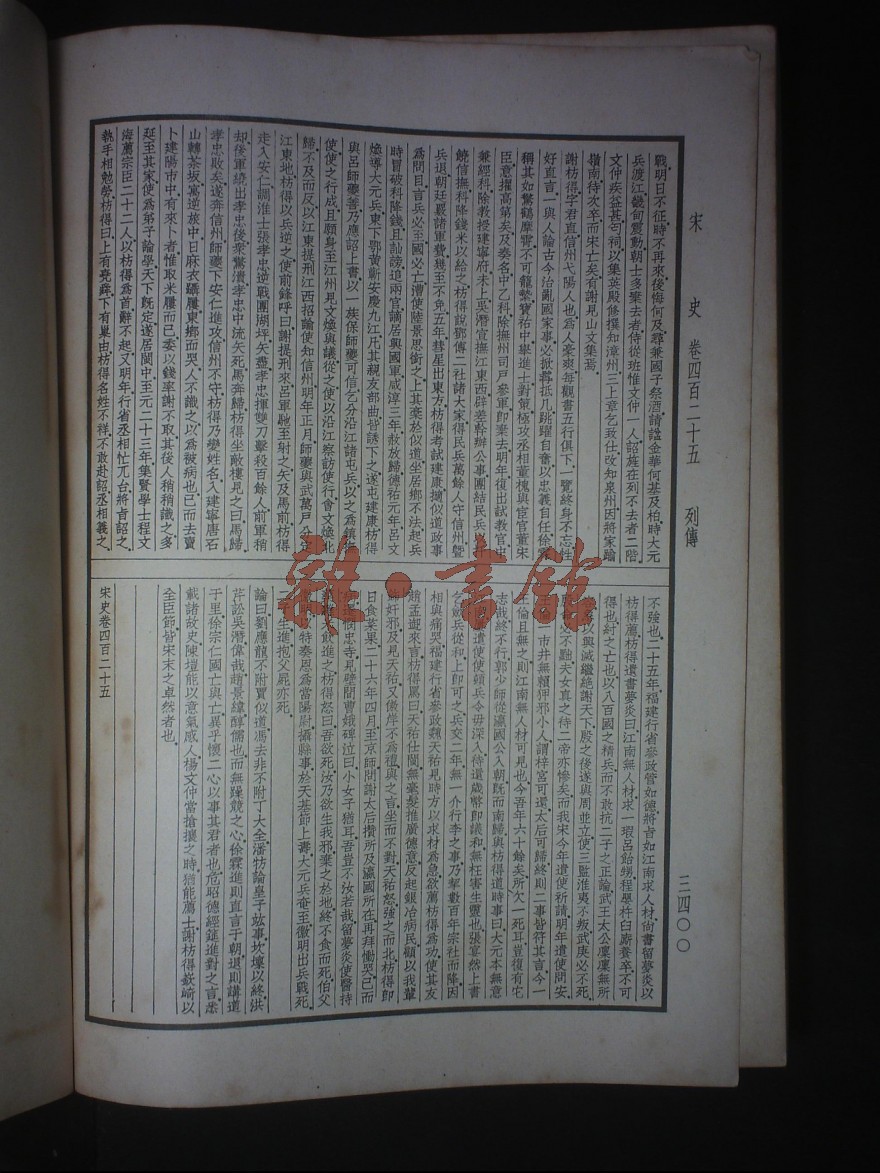 宋史 卷四百二十五 列傳
三四〇〇
戰明日不征時不再來後悔何及尋兼國子祭酒請諡金華何基及柏時大元
兵渡江畿甸震動朝士多棄去者侍從班惟文仲一人詔旌在列不去者二階
文仲疾益甚匄祠以集英殿修撰知漳州三上章乞致仕改知泉州因將家踰
嶺南待次卒而宋亡矣有謝見山文集焉
謝枋得字君直信州弋陽人也爲人豪爽每觀書五行俱下一覽終身不忘性
好直言一與人論古今治亂國家事必掀髯抵几跳躍自奮以忠義自任徐霖
稱其如驚鶴摩霄不可籠縶寶祐中舉進士對策極攻丞相董槐與宦官董宋
臣意擢高第矣及奏名中乙科除撫州司戶參軍卽棄去明年復出試教官中
兼經科除教授建寧府未上吳潛宣撫江東西辟差幹辦公事團結民兵以扞
饒信撫科降錢米以給之枋得說鄧傅二社諸大家得民兵萬餘人守信州曁
兵退朝廷覈諸軍費幾至不免五年彗星出東方枋得考試建康擿似道政事
爲問目言兵必至國必亡漕使陸景思銜之上其藁於似道坐居鄉不法起兵
時冒破科降錢且訕謗追兩官謫居興國軍咸淳三年赦放歸德祐元年呂文
煥導大元兵東下鄂黃蘄安慶九江凡其親友部曲皆誘下之遂屯建康枋得
與呂師夔善乃應詔上書以一族保師夔可信乞分沿江諸屯兵以之爲鎮撫
使使之行成且願身至江州見文煥與議從之使以沿江察訪使行會文煥北
歸不及而反以江東提刑江西招諭使知信州明年正月師夔與武萬戶分定
江東地枋得以兵逆之使前鋒呼曰謝提刑來呂軍馳至射之矢及馬前枋得
走入安仁調淮士張孝忠逆戰團湖坪矢盡孝忠揮雙刀擊殺百餘人前軍稍
却後軍繞出孝忠後衆驚潰孝忠中流矢死馬奔歸枋得坐敵樓見之曰馬歸
孝忠敗矣遂奔信州師夔下安仁進攻信州不守枋得乃變姓名入建寧唐石
山轉茶坂寓逆旅中日麻衣躡屨東鄉而哭人不識之以爲被病也已而去賣
卜建陽市中有來卜者惟取米屨而已委以錢率謝不取其後人稍稍識之多
延至其家使爲弟子論學天下旣定遂居閩中至元二十三年集賢學士程文
海薦宋臣二十二人以枋得爲首辭不起又明年行省丞相忙兀台將旨詔之
執手相勉勞枋得曰上有堯舜下有巢由枋得名姓不祥不敢赴詔丞相義之
不強也二十五年福建行省參政管如德將旨如江南求人材尙書留夢炎以
枋得薦枋得遺書夢炎曰江南無人材求一瑕呂飴甥程嬰杵臼廝養卒不可
得也紂之亡也以八百國之精兵而不敢抗二子之正論武王太公凜凜無所
以興滅繼絕謝天下殷之後遂與周並立使三監淮夷不叛武庚必不死
必不黜夫女眞之待二帝亦慘矣而我宋今年遣使祈請明年遣使問安
市井無賴狎邪小人謂梓宮可還太后可歸終則二事皆符其言今一
倫且無之則江南無人材可見也今吾年六十餘矣所欠一死耳豈復有它
志哉終不行郭少師從瀛國公入朝旣而南歸與枋得道時事曰大元本無意
遣使使頓兵令毋深入待還歲幣卽議和無枉害生靈也張宴然上書
乞斂兵從和上卽可之兵交二年無一介行李之事乃挈數百年宗社而降因
相與痛哭福建行省參政魏天祐見時方以求材爲急欲薦枋得爲功使其友
趙孟𨗴來言枋得罵曰天祐仕閩無毫髮推廣德意反起銀冶病民顧以我輩
飾好邪及見天祐又傲岸不爲禮與之言坐而不對天祐怒強之而北枋得卽
日食菜果二十六年四月至京師問謝太后攢所及瀛國所在再拜慟哭已而
病遷憫忠寺見壁間曹娥碑泣曰小女子猶耳吾豈不汝若哉留夢炎使醫持
飮進之枋得怒曰吾欲死汝乃欲生我邪棄之於地終不食而死伯父
特奏恩爲當陽尉攝縣事於天基節上壽大元兵奄至徽明出兵戰死
二子進抱父屍亦死
論曰劉應龍不附賈似道馮去非不附丁大全潘牥論皇子竑事坎壈以終洪
芹訟吳潛偉哉趙景緯醇儒也而無躁競之心徐霖進則直言于朝退則講道
于里徐宗仁國亡與亡異乎懷二心以事其君者也危昭德經筵進對之言悉
載諸故史陳塏能以意氣感人楊文仲當搶攘之時猶能薦士謝枋得嶔崎以
全臣節皆宋末之卓然者也
宋史卷四百二十五